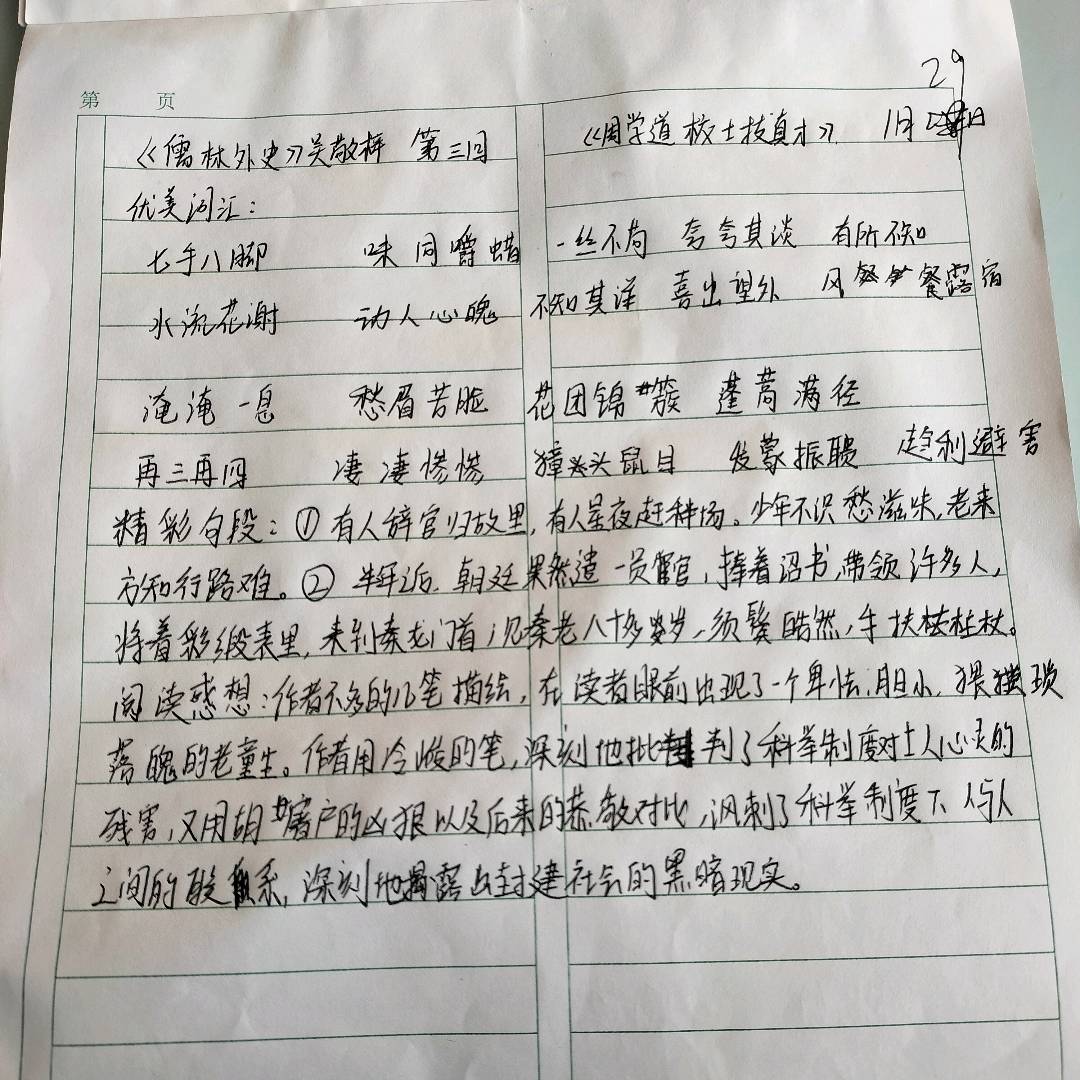 29
第 页
《儒林外史》吴敬梓 第三回 《周学道校士拔真才》 1月
优美词汇：
七手八脚 味同嚼蜡 一丝不苟 夸夸其谈 有所不知
水流花谢 动人心魄 不知其详 喜出望外 风餐露宿
淹淹一息 愁眉苦脸 花团锦簇 蓬蒿满径
再三再四 凄凄惨惨 獐头鼠目 发蒙振聩 趋利避害
精彩句段：① 有人辞官归故里，有人星夜赶科场。少年不识愁滋味，老来
方知行路难。② 年后，朝廷果然遣一员官，捧着诏书，带领许多人，
将着彩缎表里，来到秦老门首，见秦老八十多岁，须鬓皓然，手扶拄杖。
阅读感想：作者不多的几笔描绘，在读者眼前出现了一个卑怯，胆小，猥琐
落魄的老童生。作者用冷峻的笔，深刻地批判了科举制度对士人心灵的
残害，又用胡屠户的凶狠以及后来的恭敬对比，讽刺了科举制度下人与人
之间的关系，深刻地揭露出封建社会的黑暗现实。